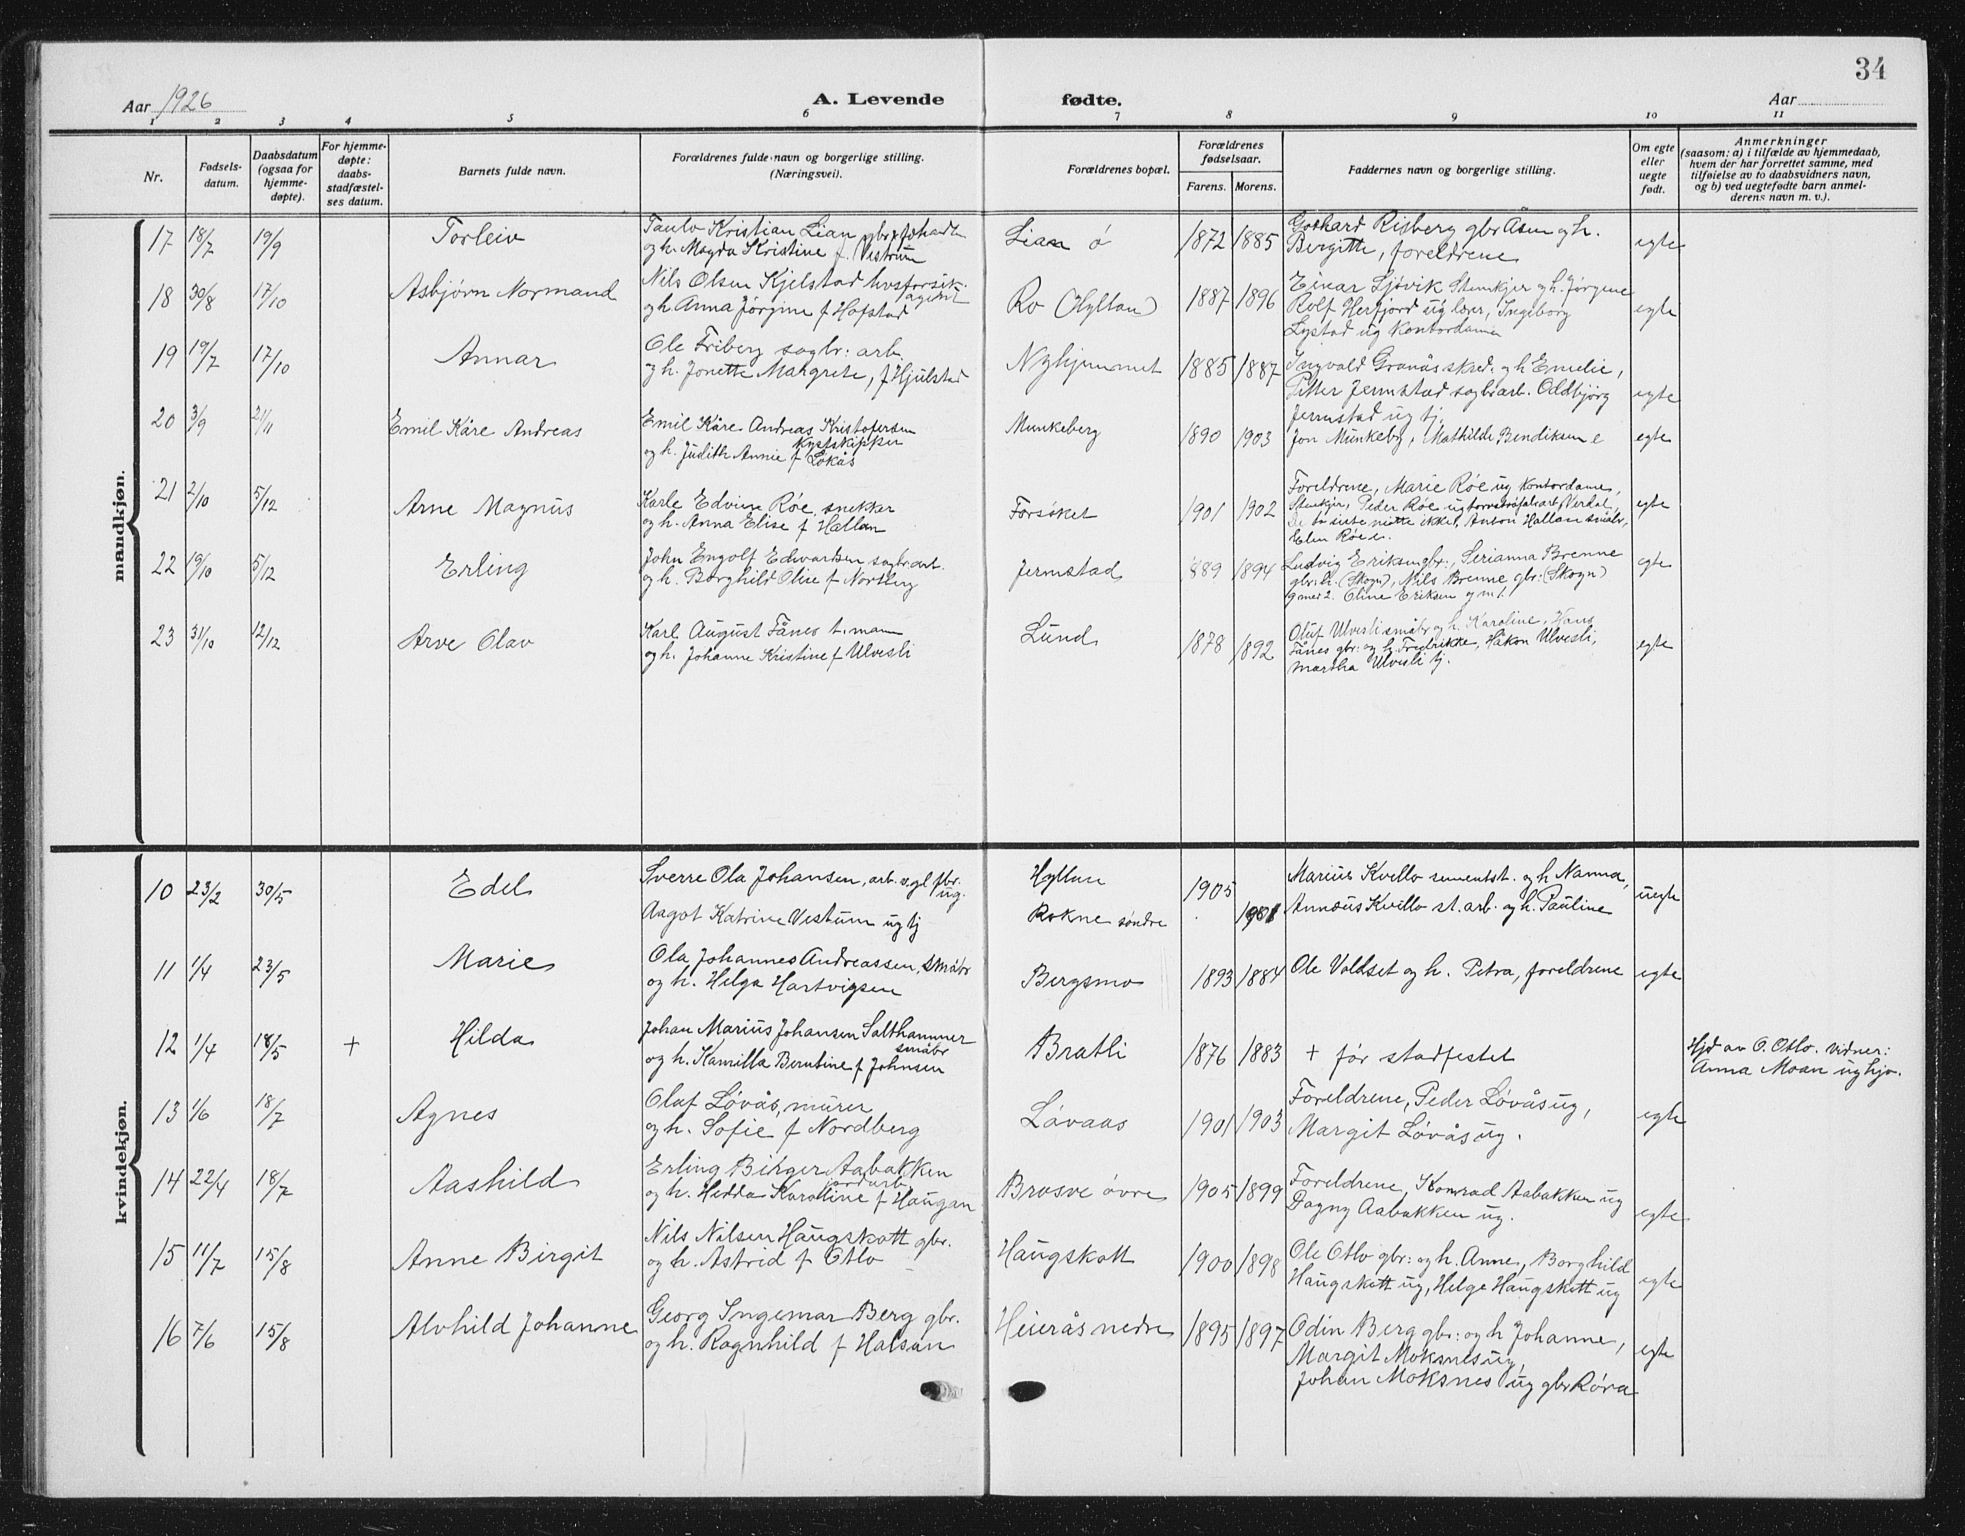 34
Aar 1926
A. Levende fødte.
Aar
1 2 3 4 5 6 7 8 9 10 11
Nr.
Fødsels-
datum.
Daabsdatum
(ogsaa for
hjemme-
døpte).
For hjemme-
døpte:
daabs-
stadfæstel-
ses datum.
Barnets fulde navn.
Forældrenes fulde navn og borgerlige stilling.
(Næringsvei).
Forældrenes bopæl.
Forældrenes
fødselsaar.
Farens. Morens.
Faddernes navn og borgerlige stilling.
Om egte
eller
uegte
født.
Anmerkninger
(saasom: a) i tilfælde av hjemmedaab,
hvem der har forrettet samme, med
tilføielse av to daabsvidners navn,
og b) ved uegtefødte barn anmel-
derens navn m. v.).
mandkjøn.
17 18/7 19/9 Torleiv
Paulv Kristian Lian gbr
og h. Magda Kristine f. Vestrum
Lian ø 1872 1885
Gothard Risberg gbr Åsen og h.
Bergitte, foreldrene
egte
18 30/8 17/10 Asbjørn Normand
Nils Olsen Kjelstad livsforsik.
agent
og h. Anna Jørgine f Hofstad
Ro (Hyllan) 1887 1896
Einar Sjøvik Steinkjer og h. Jørgine
Rolf Herfjord ug lærer, Ingeborg
Lystad ug kontordame
egte
19 19/7 17/10 Annar
Ole Friberg sagbr: arb.
og h. Jonette Margrete, f Hjulstad
Nyhjemmet 1885 1887
Ingvald Granås skred. og h Emelie,
Petter Jermstad sagb: arb. Oddbjørg
Jermstad ug tj.
egte
20 3/9 21/11 Emil Kåre Andreas
Emil Kåre Andreas Kristofersen
kystskipper
og h. Judith Annie f Løkås
Munkeberg 1890 1903
Jon Munkeby, Mathilde Bendiksen e
egte
21 2/10 5/12 Arne Magnus
Karle Edvin Røe, snekker
og h. Anna Elise f Hallan
Forsøket 1901 1902
Foreldrene, Marie Røe ug kontordame,
Steinkjer, Peder Røe ug Verdal,
De to siste møtte ikke, Anton Hallan småbr,
Elen Røe e.
egte
22 19/10 5/12 Erling
John Engolf Edvardsen sagbr.arb.
og h. Borghild Olise f Norberg
Jermstad 1889 1894
Ludvig Eriksen gbr:, Serianna Brenne
gbr: e. (Skogn), Nils Brenne gbr: (Skogn)
Oline Eriksen
egte
23 31/10 12/12 Arve Olav
Karl August Fånes t. mann
og h. Johanne Kristine f Ulvesli
Lund 1878 1892
Oluf Ulvesli småbr og h. Karoline, Hans
Fånes gbr: og h. Fredrikke, Håkon Ulvesli,
Martha Ulvesli tj.
egte
kvindekjøn.
10 23/2 30/5 Edel
Sverre Ola Johansen, arb. v. gl fbr.
ug.
Aagot Katrine Vestum ug tj
Hyllan
Rokne søndre
1905
1901
Marius Kvello sementst. og h Nanna,
Annæus Kvello st. arb. og h. Pauline
uegte
11 1/4 23/5 Marie
Ola Johannes Andreassen, småbr
og h. Helga Hartvigsen
Bergsmo 1893 1884
Ole Voldset og h. Petra, foreldrene
egte
12 1/4 18/5 + Hilda
Johan Marius Johansen Salthammer
småbr
og h. Kamilla Berntine f Johnsen
Bratli 1876 1883
+ før stadfestet
Hjd av O. Otlo. Vidner:
Anna Moan ug hjo.
13 1/6 18/7 Agnes
Olaf Løvås, murer
og h. Sofie f Nordberg
Løvaas 1901 1903
Foreldrene, Peder Løvås ug,
Margit Løvås ug.
egte
14 22/4 18/7 Aashild
Erling Birger Aabakken
jordarb.
og h. Hedda Karoline f Haugan
Brasve øvre 1905 1899
Foreldrene, Konrad Aabakken ug
Dagny Aabakken ug.
egte
15 11/7 15/8 Anne Birgit
Nils Nilsen Haugskott gbr.
og h. Astrid f Otlo
Haugskott 1900 1898
Ole Otlo gbr: og h. Anne, Borghild
Haugskott ug, Helge Haugskott ug
egte
16 7/6 15/8 Alvhild Johanne
Georg Ingemar Berg gbr.
og h. Ragnhild f Halsan
Heierås nedre 1895 1897
Odin Berg gbr: og h Johanne,
Margit Moksnes ug,
Johan Moksnes ug gbr Røra
egte